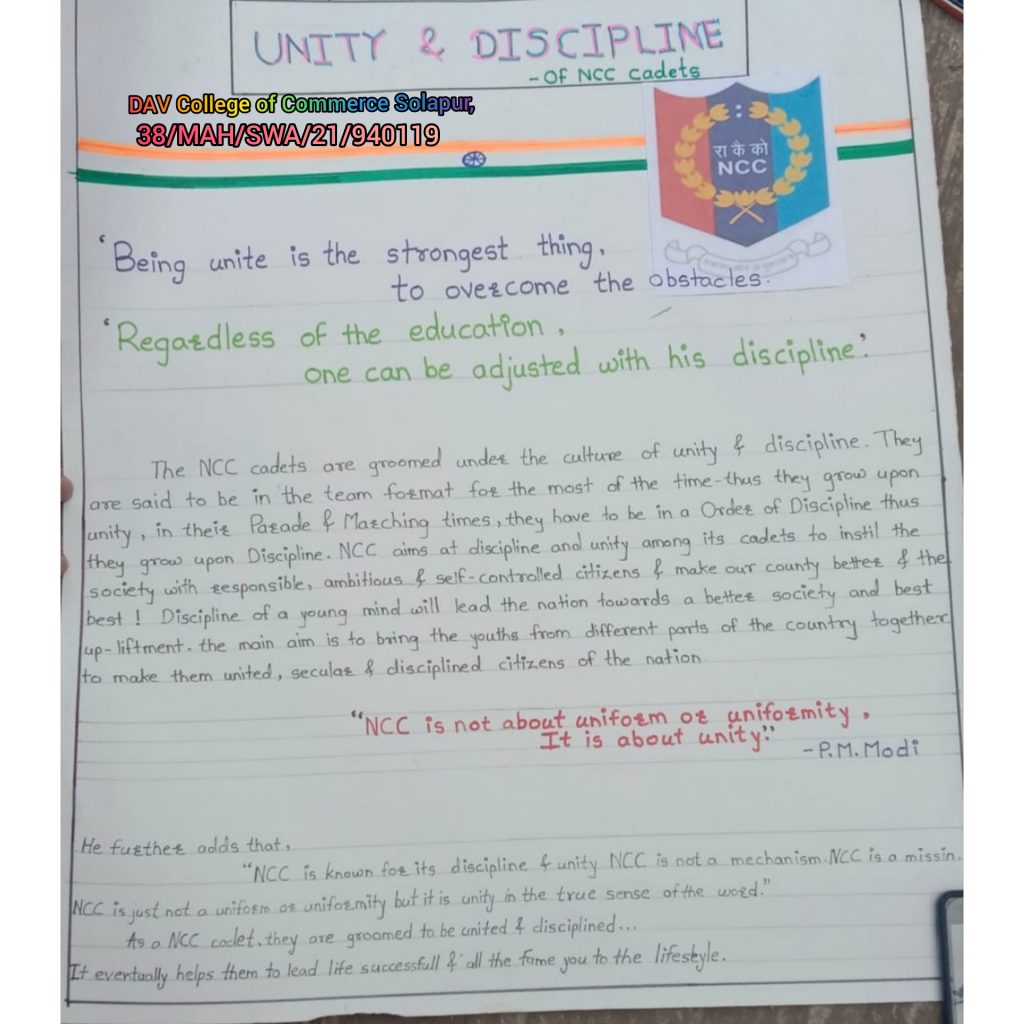 UNITY & DISCIPLINE
- OF NCC cadets
DAV College of Commerce Solapur,
38/MAH/SWA/21/940119
रा कै को
NCC
'Being unite is the strongest thing,
to overcome the obstacles.
'Regardless of the education,
one can be adjusted with his discipline.'
The NCC cadets are groomed under the culture of unity & discipline. They
are said to be in the team format for the most of the time-thus they grow upon
unity, in their Parade & Marching times, they have to be in a Order of Discipline thus
they grow upon Discipline. NCC aims at discipline and unity among its cadets to instil the
society with responsible, ambitious & self-controlled citizens & make our county better & the
best! Discipline of a young mind will lead the nation towards a better society and best
up-liftment. the main aim is to bring the youths from different parts of the country together
to make them united, secular & disciplined citizens of the nation.
"NCC is not about uniform or uniformity.
It is about unity."
-P.M.Modi
He further adds that,
"NCC is known for its discipline & unity NCC is not a mechanism.NCC is a missin.
NCC is just not a uniform or uniformity but it is unity in the true sense of the word."
As a NCC cadet. they are groomed to be united & disciplined...
It eventually helps them to lead life successfull & all the fame you to the lifestyle.